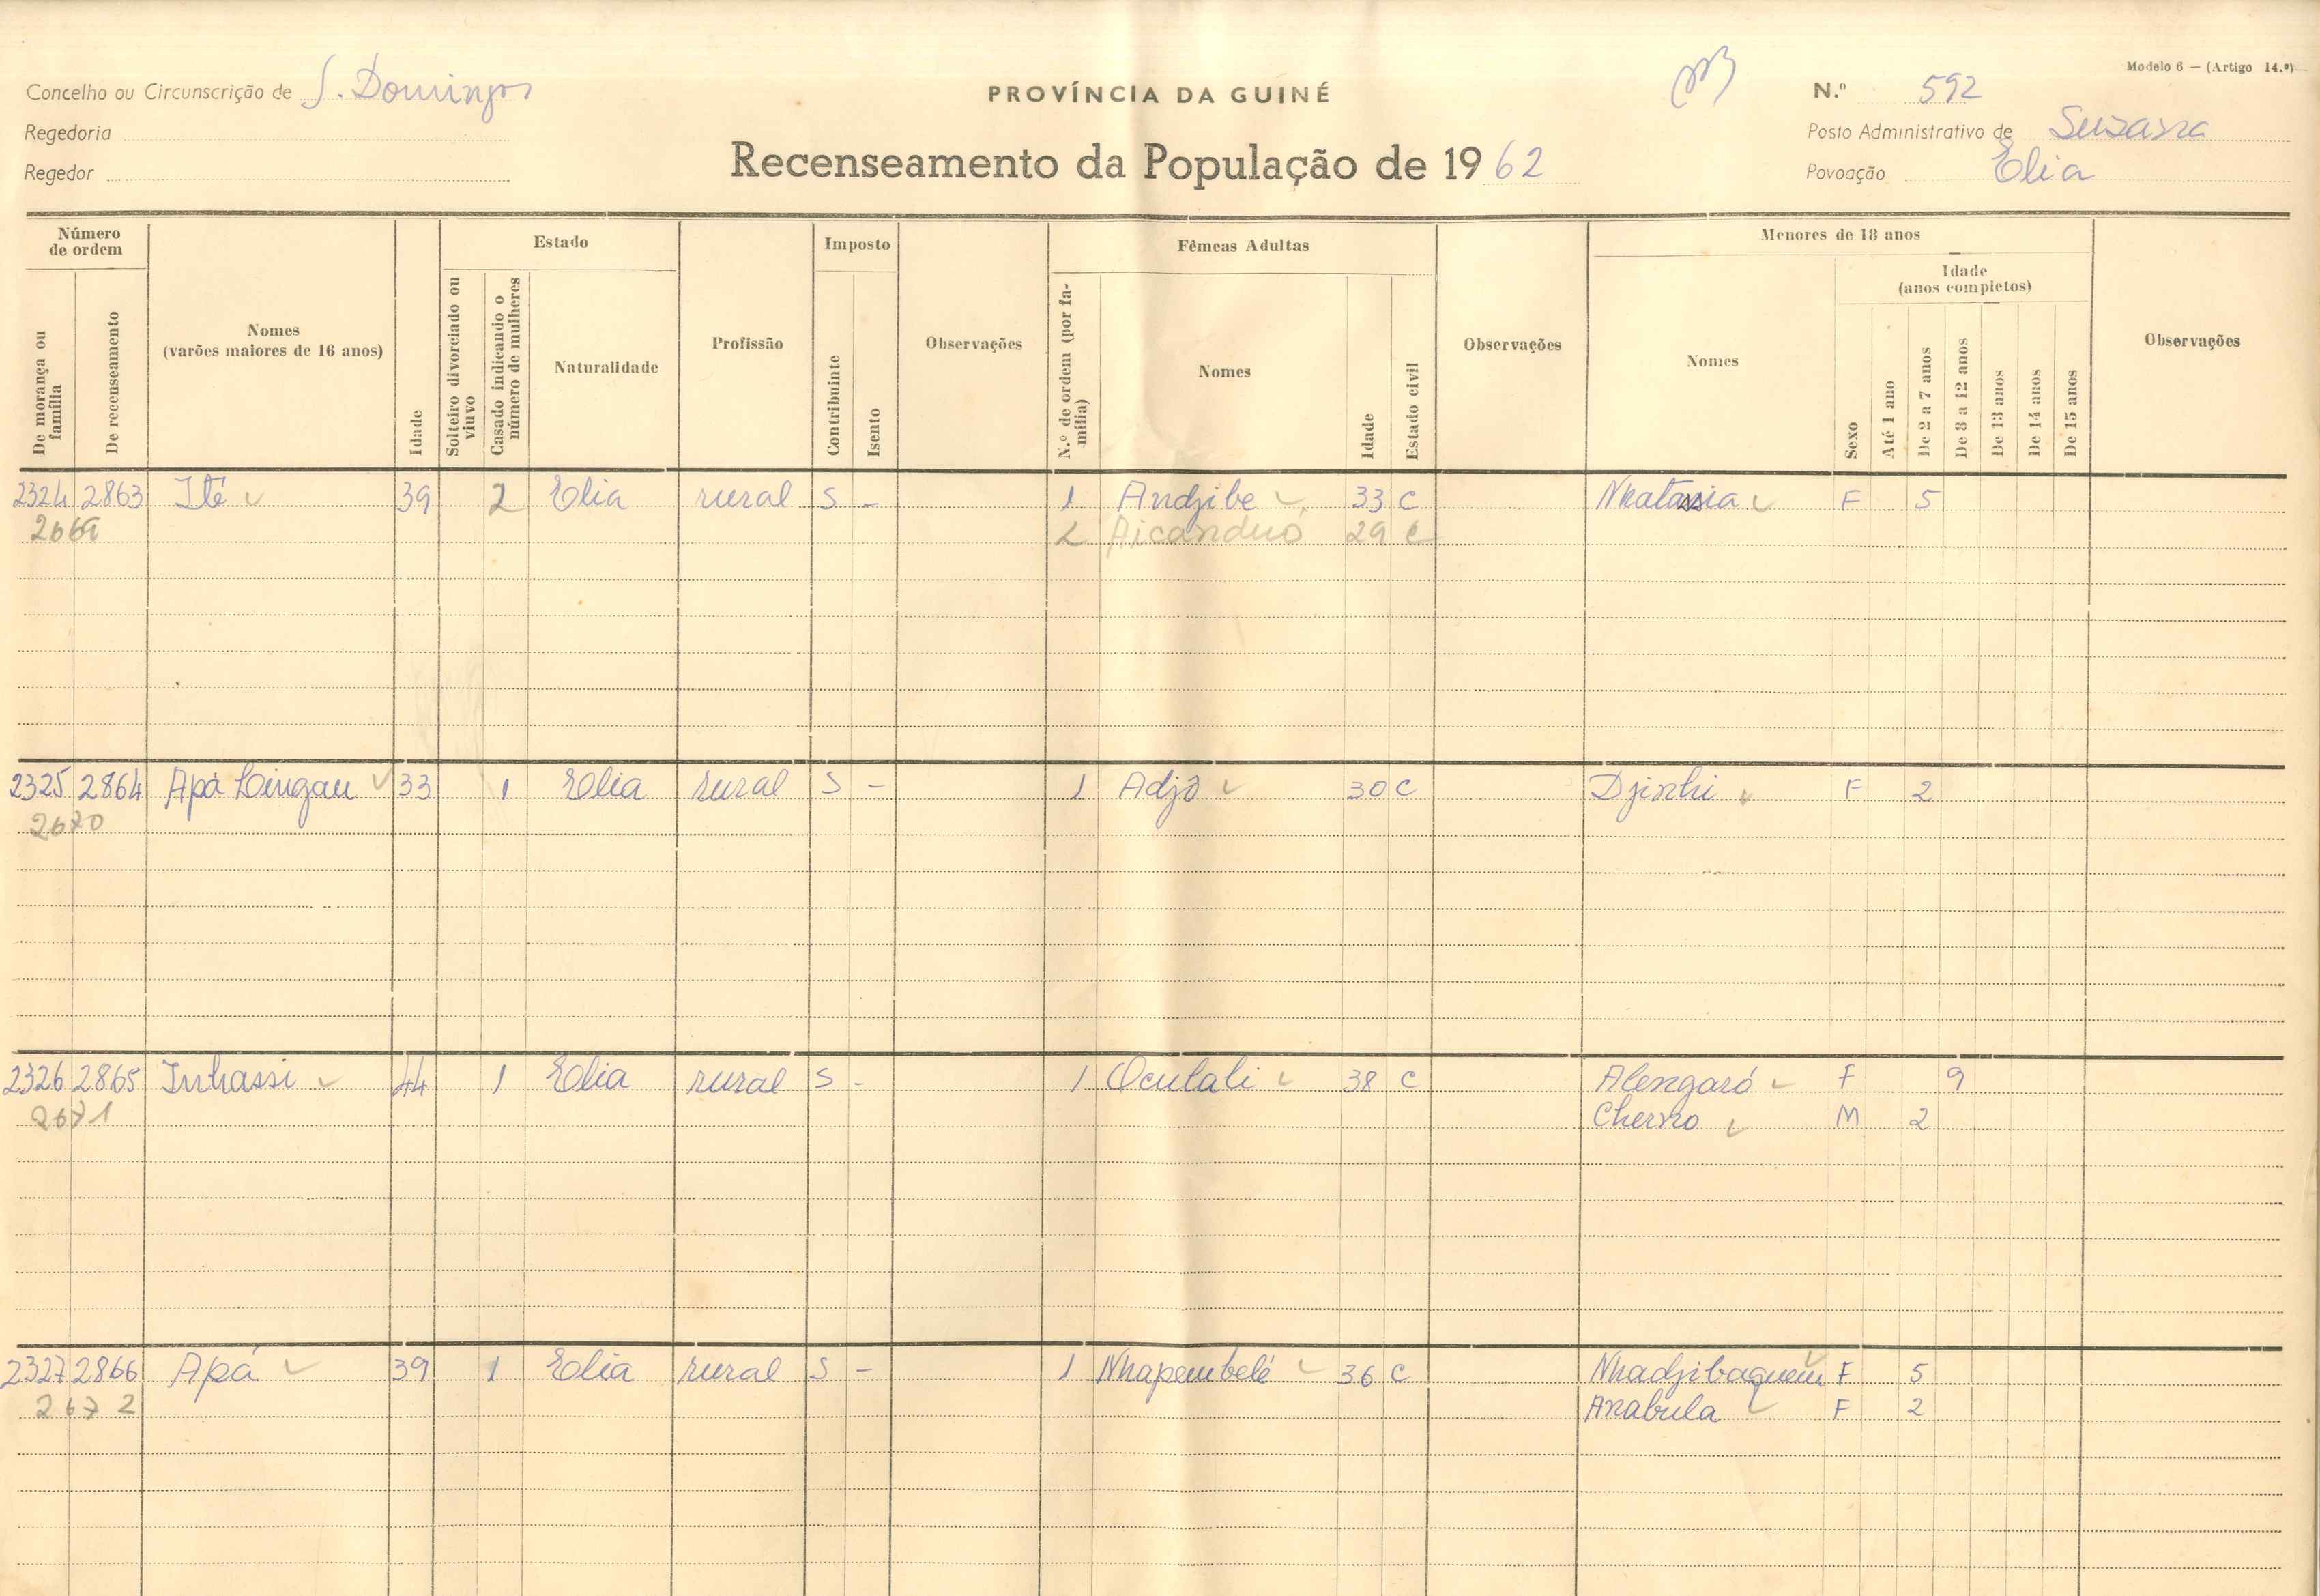 Modelo 6 — (Artigo 14.º)
Concelho ou Circunscrição de S. Domingos
PROVÍNCIA DA GUINÉ
N.º 592
Regedoria
Posto Administrativo de Suzana
Regedor
Recenseamento da População de 1962
Povoação Elia
Número de ordem
De morança ou família
De recenseamento
Nomes (varões maiores de 16 anos)
Idade
Estado
Solteiro divorciado ou viuvo
Casado indicando o número de mulheres
Naturalidade
Profissão
Imposto
Contribuinte
Isento
Observações
Fêmeas Adultas
N.º de ordem (por família)
Nomes
Idade
Estado civil
Observações
Menores de 18 anos
Nomes
Sexo
Idade (anos completos)
Até 1 ano
De 2 a 7 anos
De 8 a 12 anos
De 13 anos
De 14 anos
De 15 anos
Observações
2324 2863 Ité 39 2 Elia rural S - 1 Andjibe 33 C Nhatassia F 5
2669 2 Aicanduó 29 C
2325 2864 Apá Lingau 33 1 Elia rural S - 1 Adjó 30 C Djinhi F 2
2670
2326 2865 Inhassi 44 1 Elia rural S - 1 Oculali 38 C Alengaró F 9
2671 Cherno M 2
2327 2866 Apá 39 1 Elia rural S - 1 Nhapembelé 36 C Nhadjibaquem F 5
2672 Anabula F 2